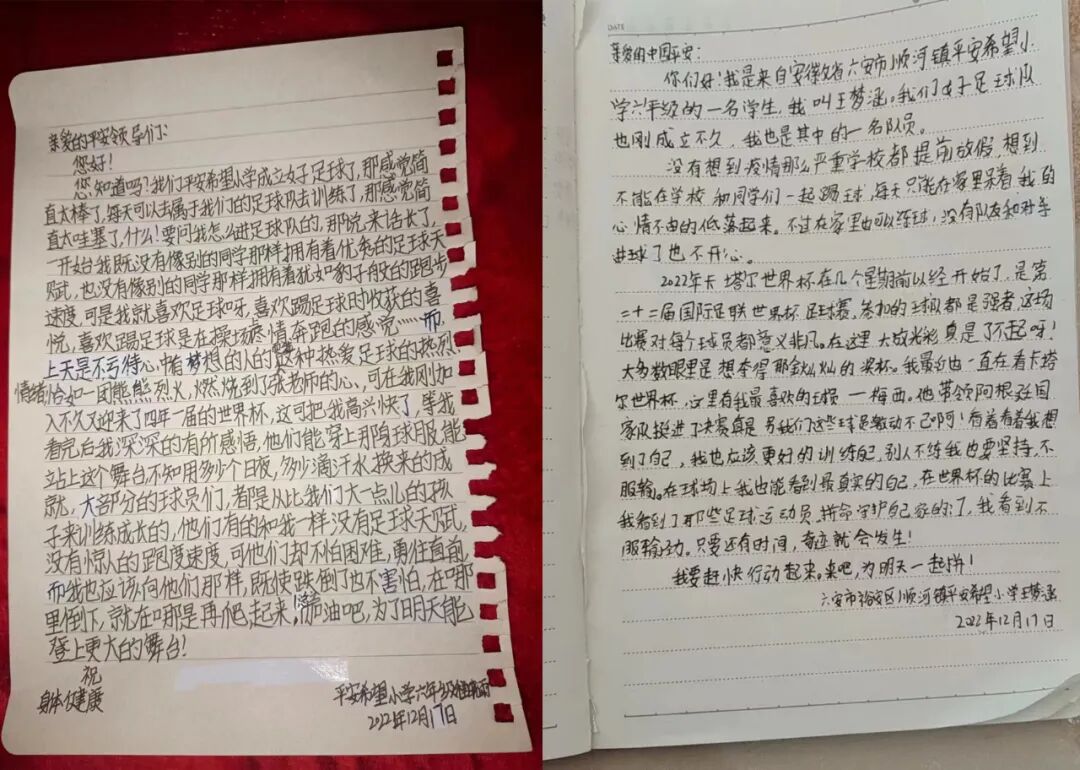 亲爱的平安领导们:
您好!
您知道吗?我们平安希望小学成立女子足球了,那感觉简
直太棒了,每天可以去属于我们的足球队去训练了,那感觉简
直太哇塞了,什么!要问我怎么进足球队的,那说来话长了,
一开始我既没有像别的同学那样拥有着优秀的足球天
赋,也没有像别的同学那样拥有着犹如豹子有效的跑步
速度,可是我就喜欢足球呀,喜欢踢足球时收获的喜
悦,喜欢踢足球是在操场疼情奔跑的感觉……而,
上天是不亏待心中有梦想的人的这种热爱足球的热烈
情绪恰如一团熊熊烈火,燃烧到了张老师的心,可在我刚加
入不久又迎来了四年一届的世界杯,这可把我高兴快了,等我
看完后我深深的有的感悟,他们能穿上那身球服,能
站上这个舞台不知用多少个日夜,多少滴汗水,换来的成
就,大部分的球员们,都是从比我们大一点儿的孩
子来训练成长的,他们有的和我一样没有足球天赋,
没有惊人的跑度速度,可他们却不怕困难,勇往直前
而我也应该向他们那样,既使跌倒了也不害怕,在哪
里倒下,就在哪是再爬起来,加油吧,为了明天能
登上更大的舞台!
祝
身体健康
平安希望小学六年级
2022年12月17日
DATE
亲爱的中国平安:
你们好!我是来自安徽省六安市顺河镇平安希望小
学六年级的一名学生,我叫王梦涵。我们女子足球队
也刚成立不久,我也是其中的一名队员。
没有想到疫情那么严重学校都提前放假,想到
不能在学校和同学们一起踢球,每天只能在家里呆着我的
心情不由的低落起来。不过在家里也可以练球,没有队友和对手
进球了也不开心。
2022年卡塔尔世界杯在几个星期前以经开始了,是第
二十二届国际足联世界杯足球赛,参加的球队都是强者,这场
比赛对每个球员都意义非凡。在这里大放光彩真是了不起呀!
大多数眼里是想夺得那金灿灿的奖杯。我最近也一直在看卡塔
尔世界杯,这里有我最喜欢的球员—梅西。他带领阿根廷国
家队挺进了决赛真是另我们这些球迷激动不已啊!看着看着我想
到了自己,我也应该更好的训练自己,别人不练我也要坚持,不
服输。在球场上我也能看到最真实的自己,在世界杯的比赛上
我看到了那些足球运动员,拼命守护自己家的门,我看到不
服输劲。只要还有时间,奇迹就会发生!
我要赶快行动起来。来吧,为明天一起拼!
六安市裕安区顺河镇平安希望小学王梦涵
2022年12月17日